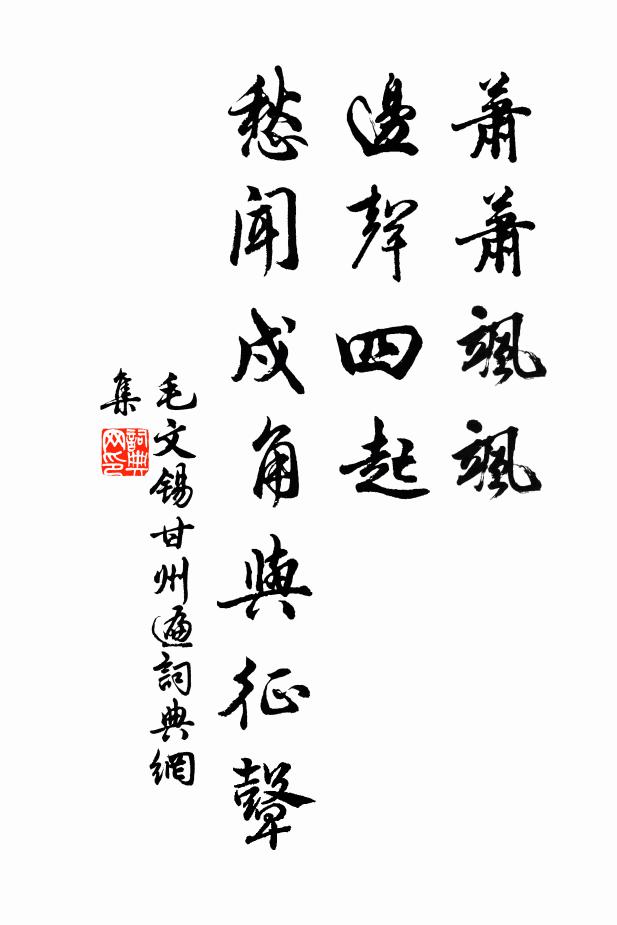 蕭蕭颯颯
邊聲四起
愁聞戍角與征鼙
毛文錫甘州遍詞典網
集
詞典
网印